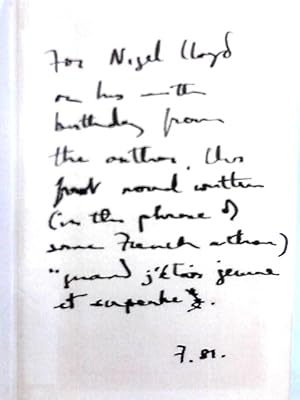 For Nigel Lloyd
on his —th
birthday from
the author, this
first novel written
(in the phrase of
some French author)
"quand j'étais jeune
et superbe".
7.81.